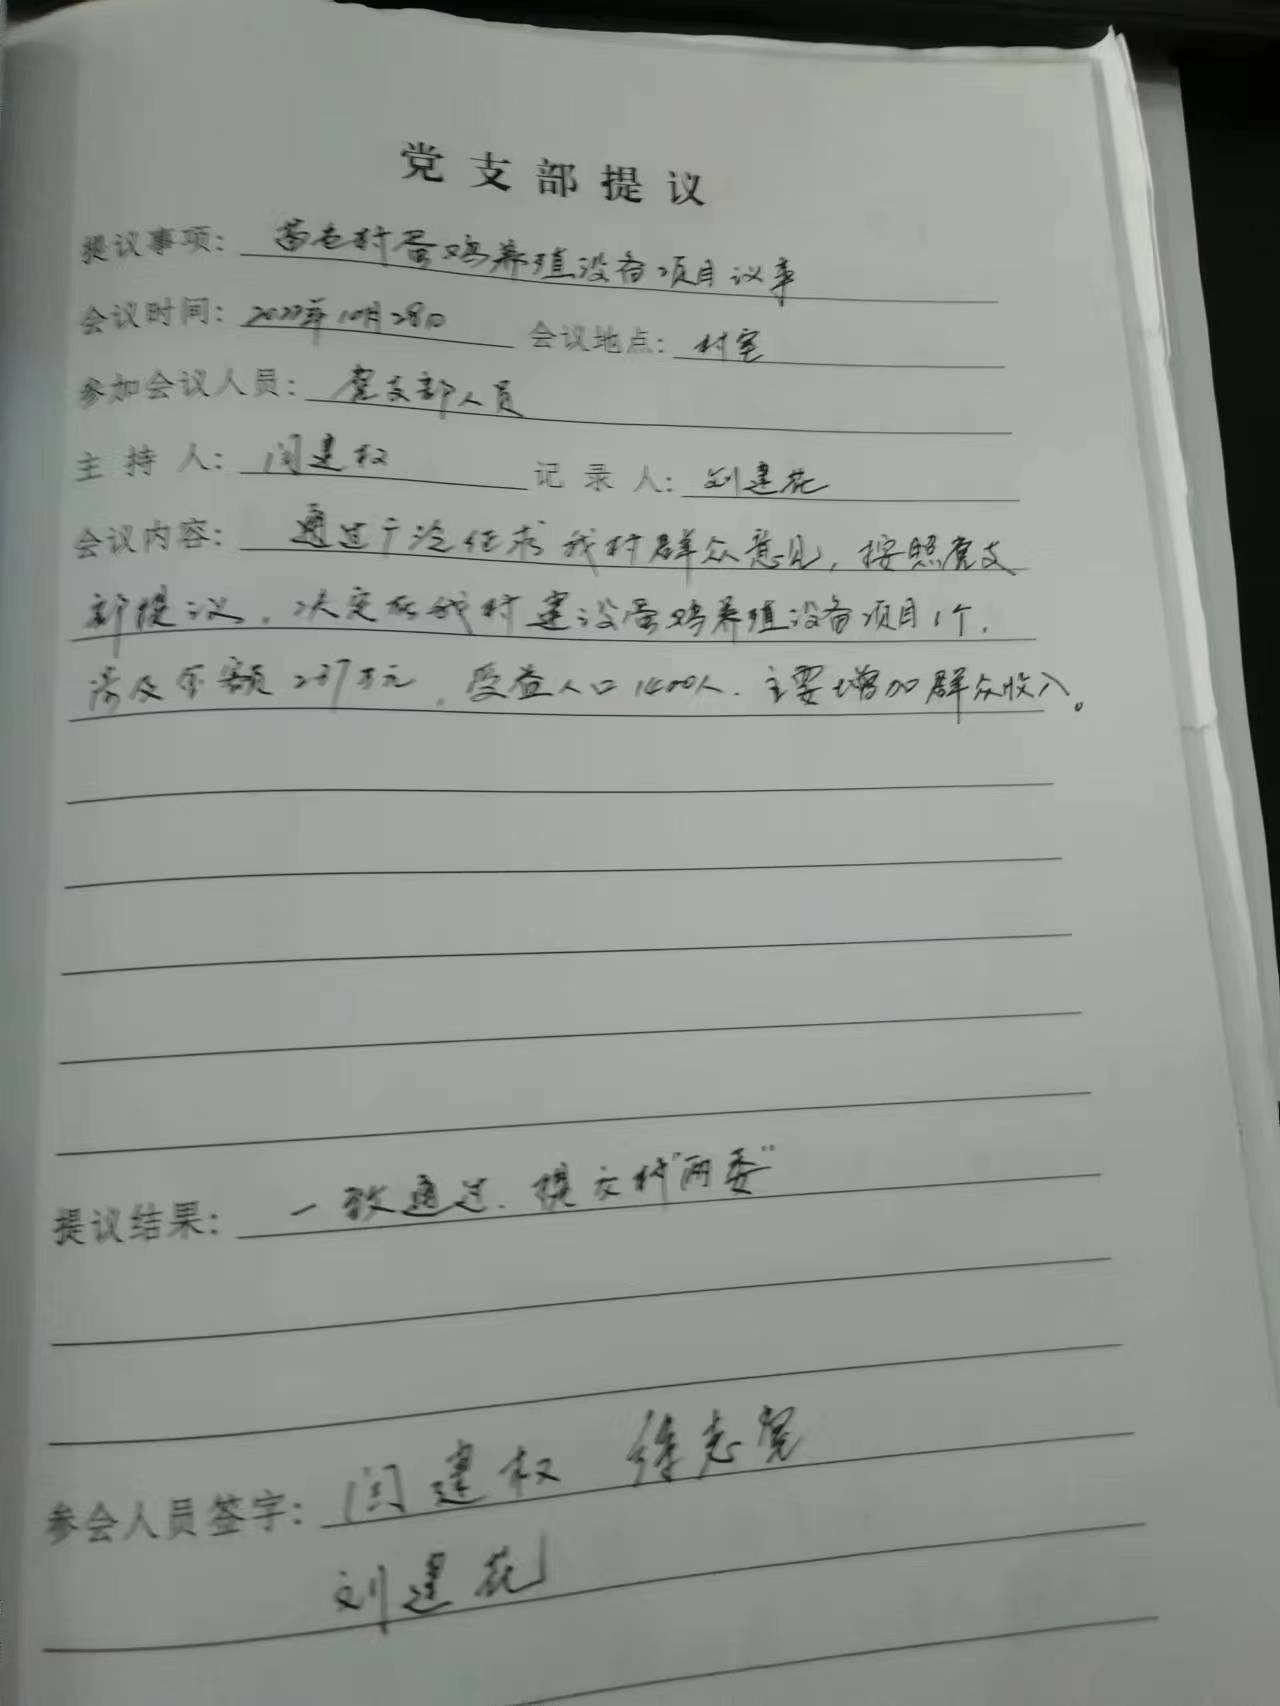 党支部提议
提议事项: 村蛋鸡养殖设备项目议事
会议时间: 10月28日 会议地点: 村室
参加会议人员: 党支部人员
主持人: 闫建权 记录人: 刘建花
会议内容: 通过广泛征求我村群众意见,按照党支
部提议,决定在我村建设蛋鸡养殖设备项目1个,
涉及金额237万元,受益人口1400人.主要增加群众收入。
提议结果: 一致通过.提交村"两委"
参会人员签字: 闫建权 徐志宽
刘建花